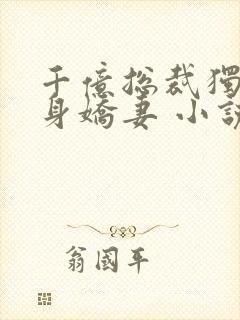 千億總裁獨
身嬌妻 小說
翁國平